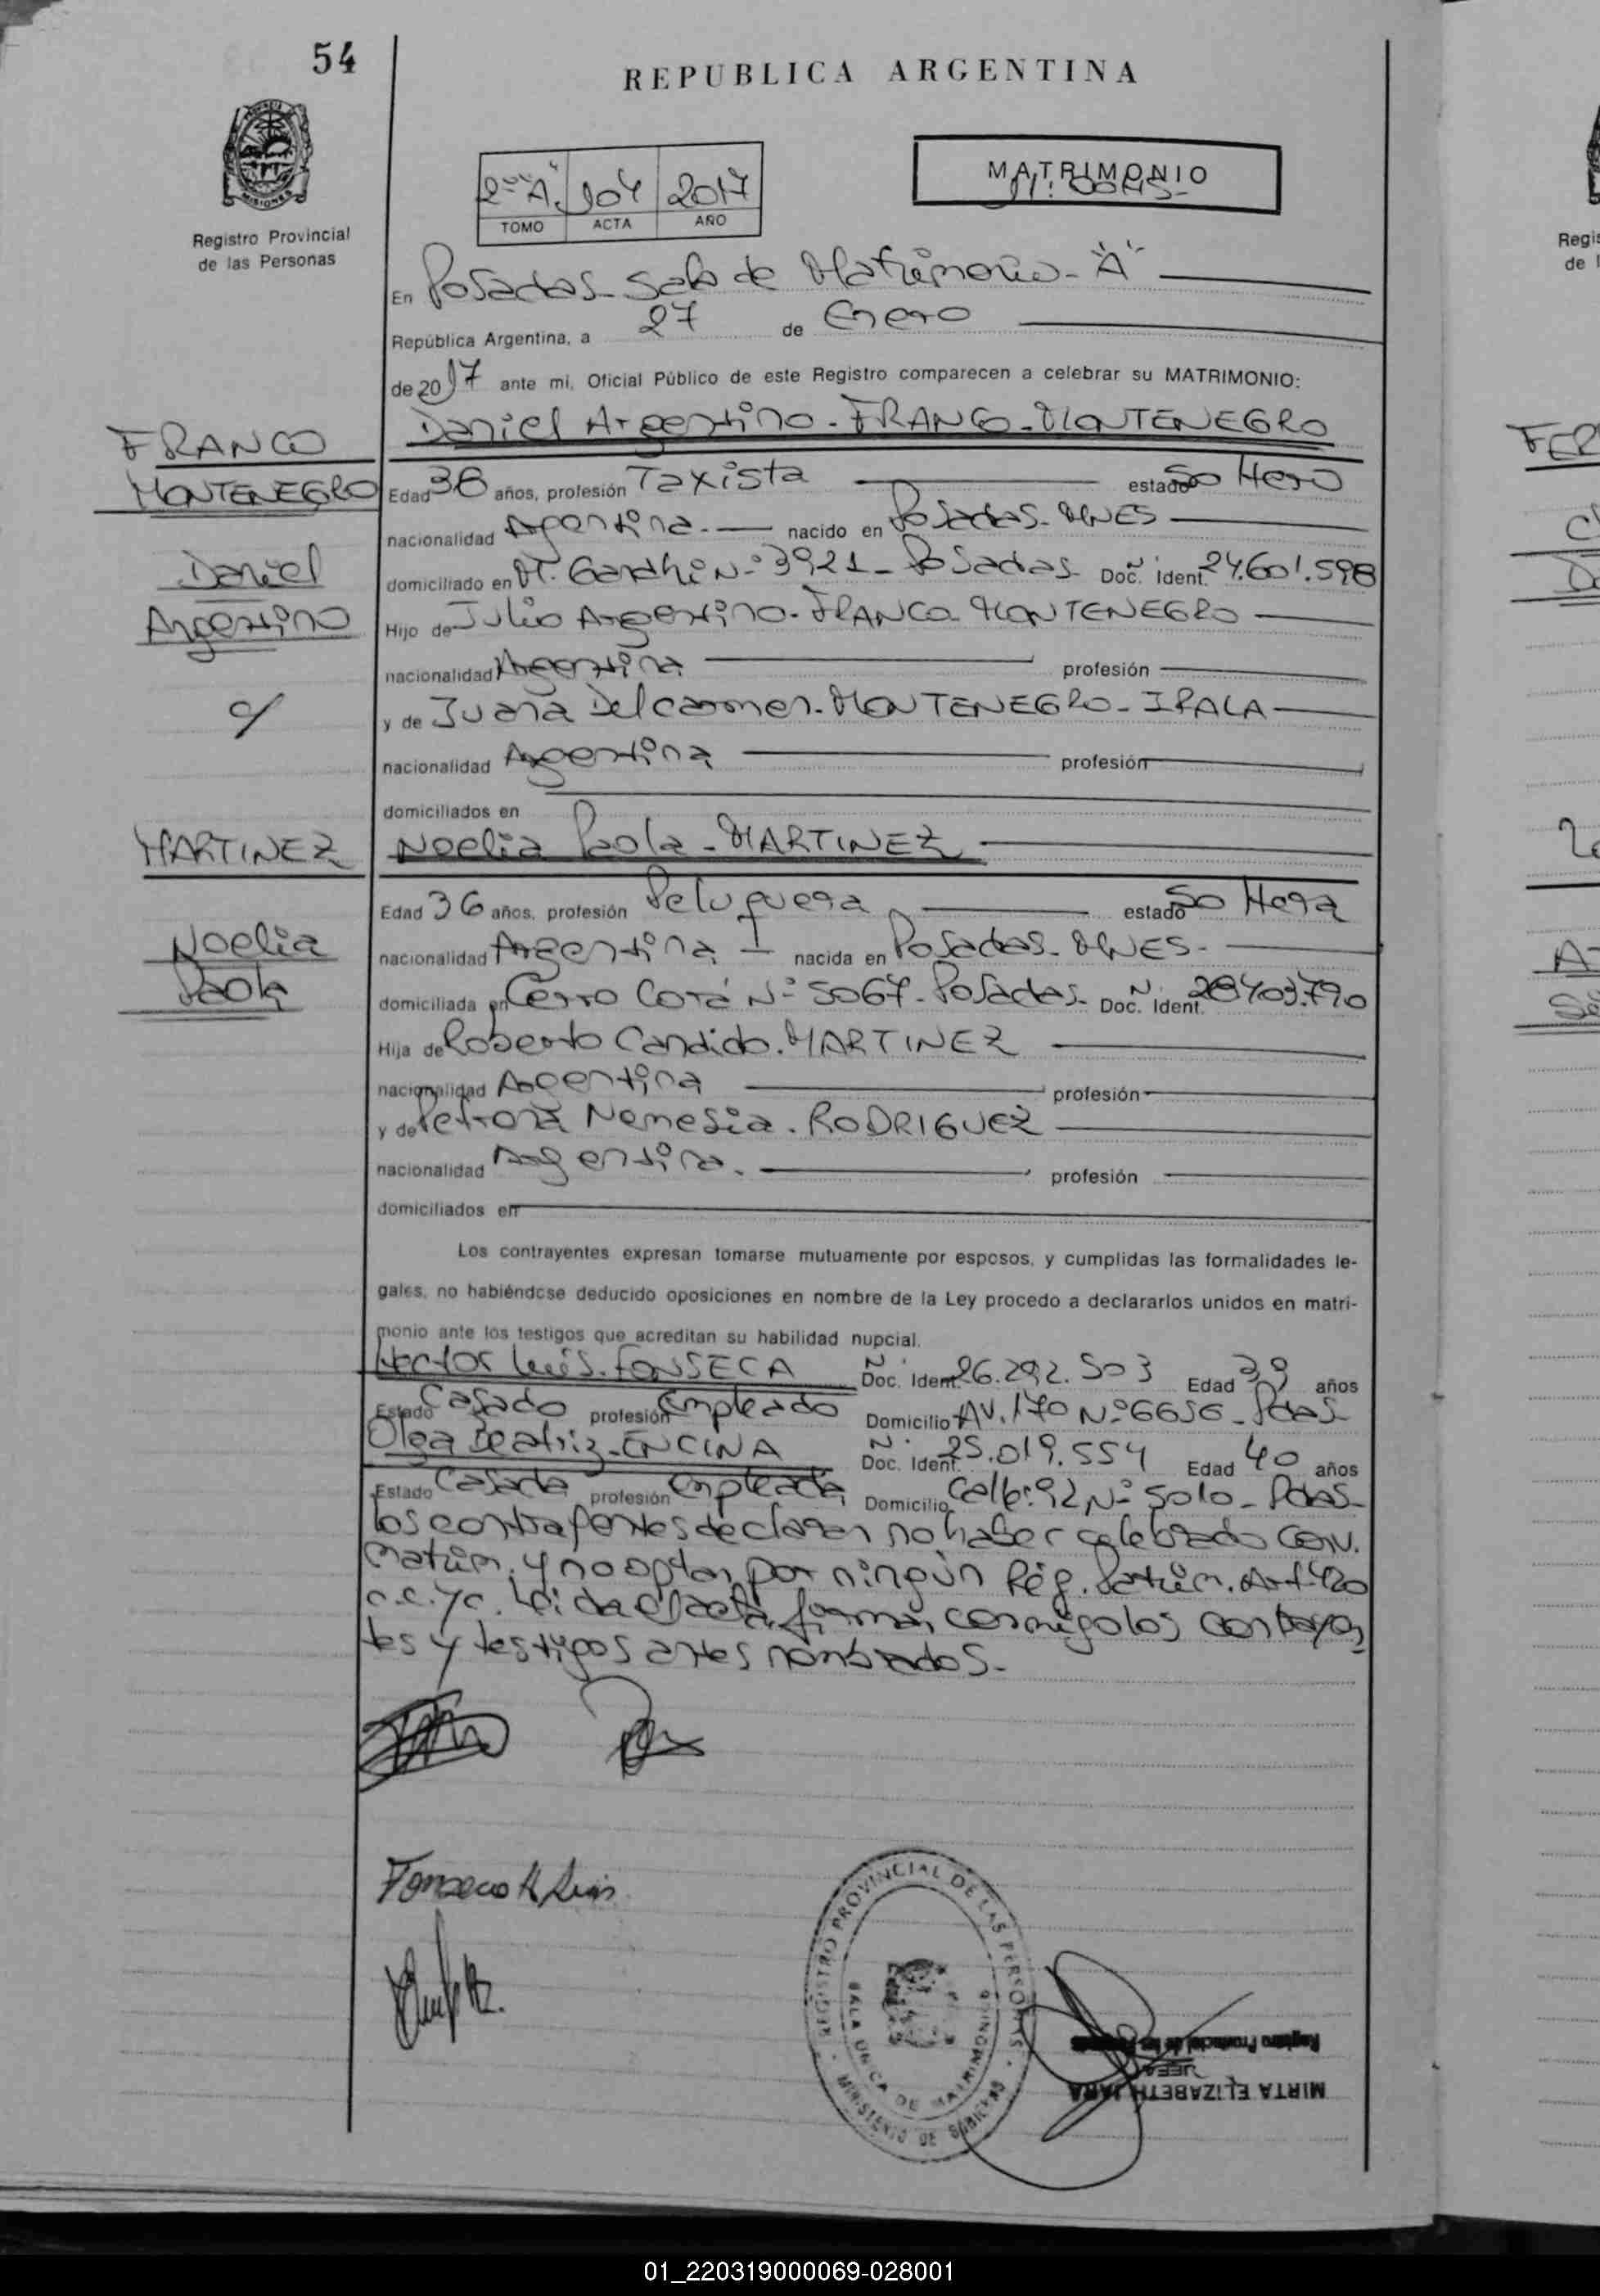 54
REPUBLICA ARGENTINA
MISIONES
Registro Provincial
de las Personas
2º "A" 104 2017
TOMO ACTA AÑO
MATRIMONIO
En Posadas - Sala de Matrimonio - "A"
República Argentina, a 27 de Enero
de 2017 ante mi, Oficial Público de este Registro comparecen a celebrar su MATRIMONIO:
Daniel Argentino - FRANCO - MONTENEGRO
FRANCO
MONTENEGRO
Daniel
Argentino
c/
Edad 36 años, profesión Taxista estado Soltero
nacionalidad Argentina. nacido en Posadas - MNES
domiciliado en M. Gandhi Nº 3921 - Posadas - Doc. Ident. Nº 24.601.598
Hijo de Julio Argentino - FRANCO MONTENEGRO
nacionalidad Argentina profesión
y de Juana Del carmen - MONTENEGRO - IRALA
nacionalidad Argentina profesión
domiciliados en
MARTINEZ
Noelia
Paola
Noelia Paola - MARTINEZ
Edad 36 años, profesión Peluquera estado Soltera
nacionalidad Argentina - nacida en Posadas - MNES -
domiciliada en Cerro Corá Nº 5067 - Posadas - Doc. Ident. Nº 28403.790
Hija de Roberto Candido. MARTINEZ
nacionalidad Argentina profesión
y de Petrona Nemesia. RODRIGUEZ
nacionalidad Argentina. profesión
domiciliados en
Los contrayentes expresan tomarse mutuamente por esposos, y cumplidas las formalidades le-
gales, no habiéndose deducido oposiciones en nombre de la Ley procedo a declararlos unidos en matri-
monio ante los testigos que acreditan su habilidad nupcial.
Hector Luis. FONSECA Doc. Ident. Nº 26.292.503 Edad 39 años
Estado Casado profesión Empleado Domicilio AV. 170 Nº 6656 - Pdas -
Olga Beatriz - ENCINA Doc. Ident. Nº 25.019.554 Edad 40 años
Estado Casada profesión Empleada Domicilio Calle: 92 Nº 5010 - Pdas -
los contrayentes declaran no haber celebrado Conv.
Matrim. y no optan por ningún Rég. Patrim. Art. 420
c.c. y c. Leida el acta, firman conmigo los contrayen
tes y testigos antes nombrados -
Fonseca H Luis
REGISTRO PROVINCIAL DE LAS PERSONAS
SALA UNICA DE MATRIMONIO
MINISTERIO DE GOBIERNO
MIRTA ELIZABETH JARA
JEFA
Registro Provincial de las Personas
Regis
de l
FER
01_220319000069-028001